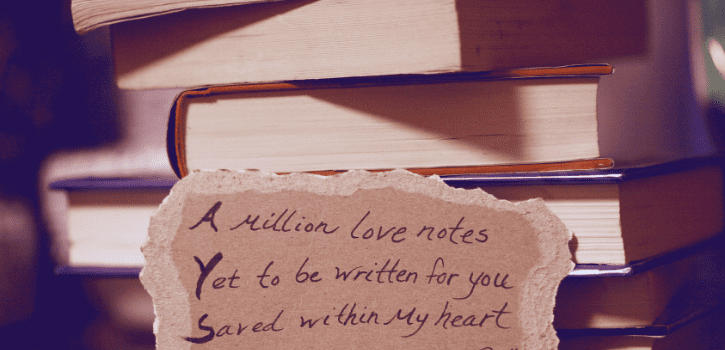 A Million love notes
Yet to be written for you
Saved within My heart